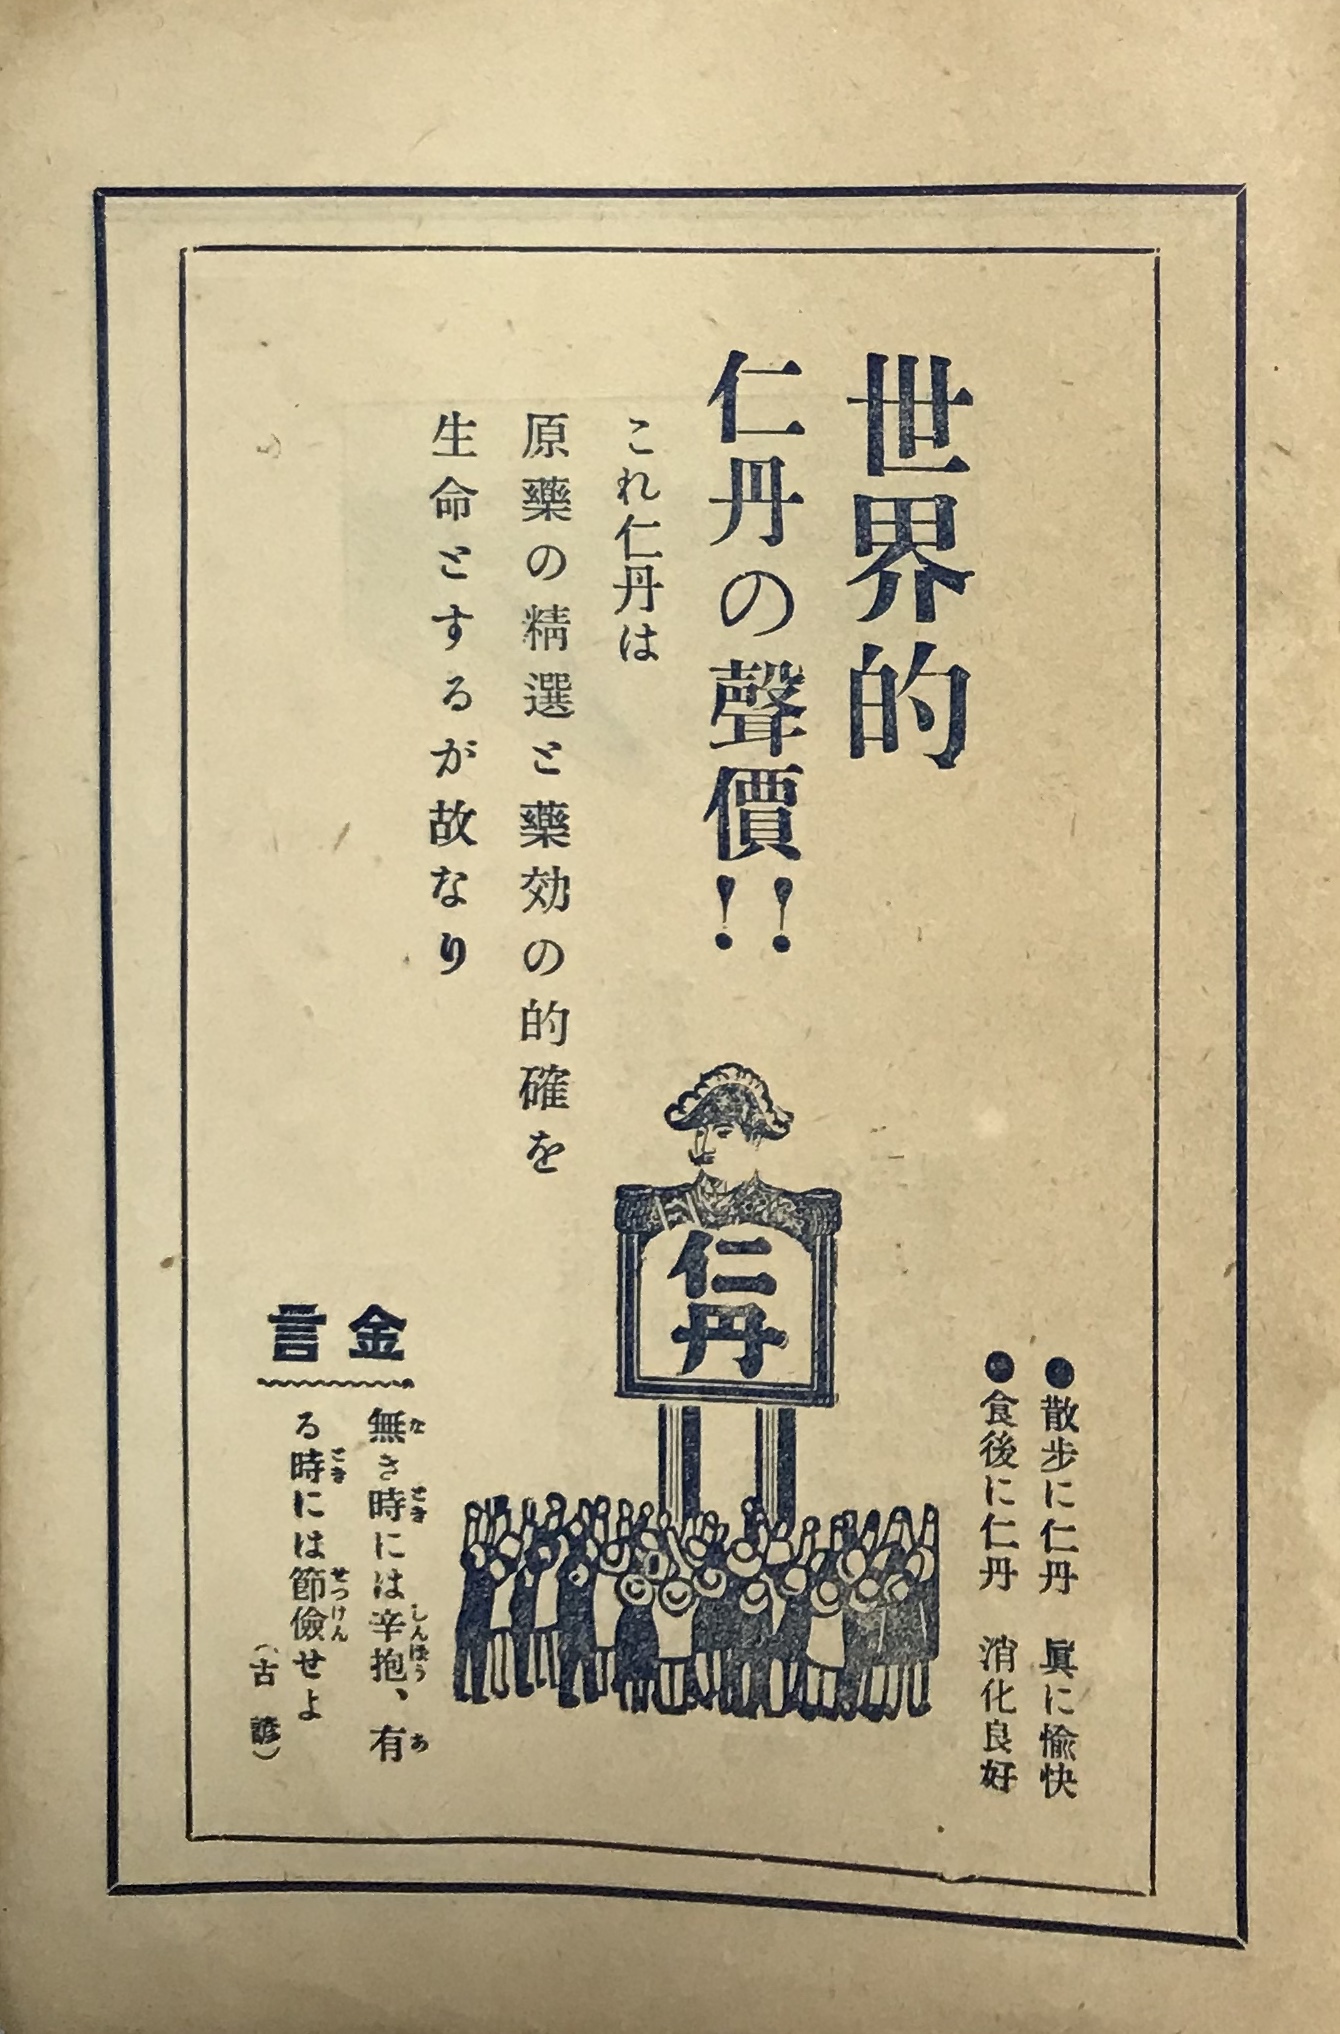 世界的
仁丹の聲價!!
これ仁丹は
原藥の精選と藥効の的確を
生命とするが故なり
仁丹
●散步に仁丹　眞に愉快
●食後に仁丹　消化良好
金言
無き時には辛抱、有
る時には節儉せよ
（古諺）